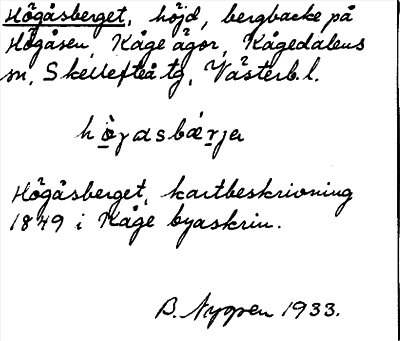 Högåsberget, höjd, bergbacke på
Högåsen, Kåge ägor, Kågedalens
sn, Skellefteå tg, Västerb. l.
Högåsberget, kartbeskrivning
1849 i Kåge byaskrin.
B. Nygren 1933.